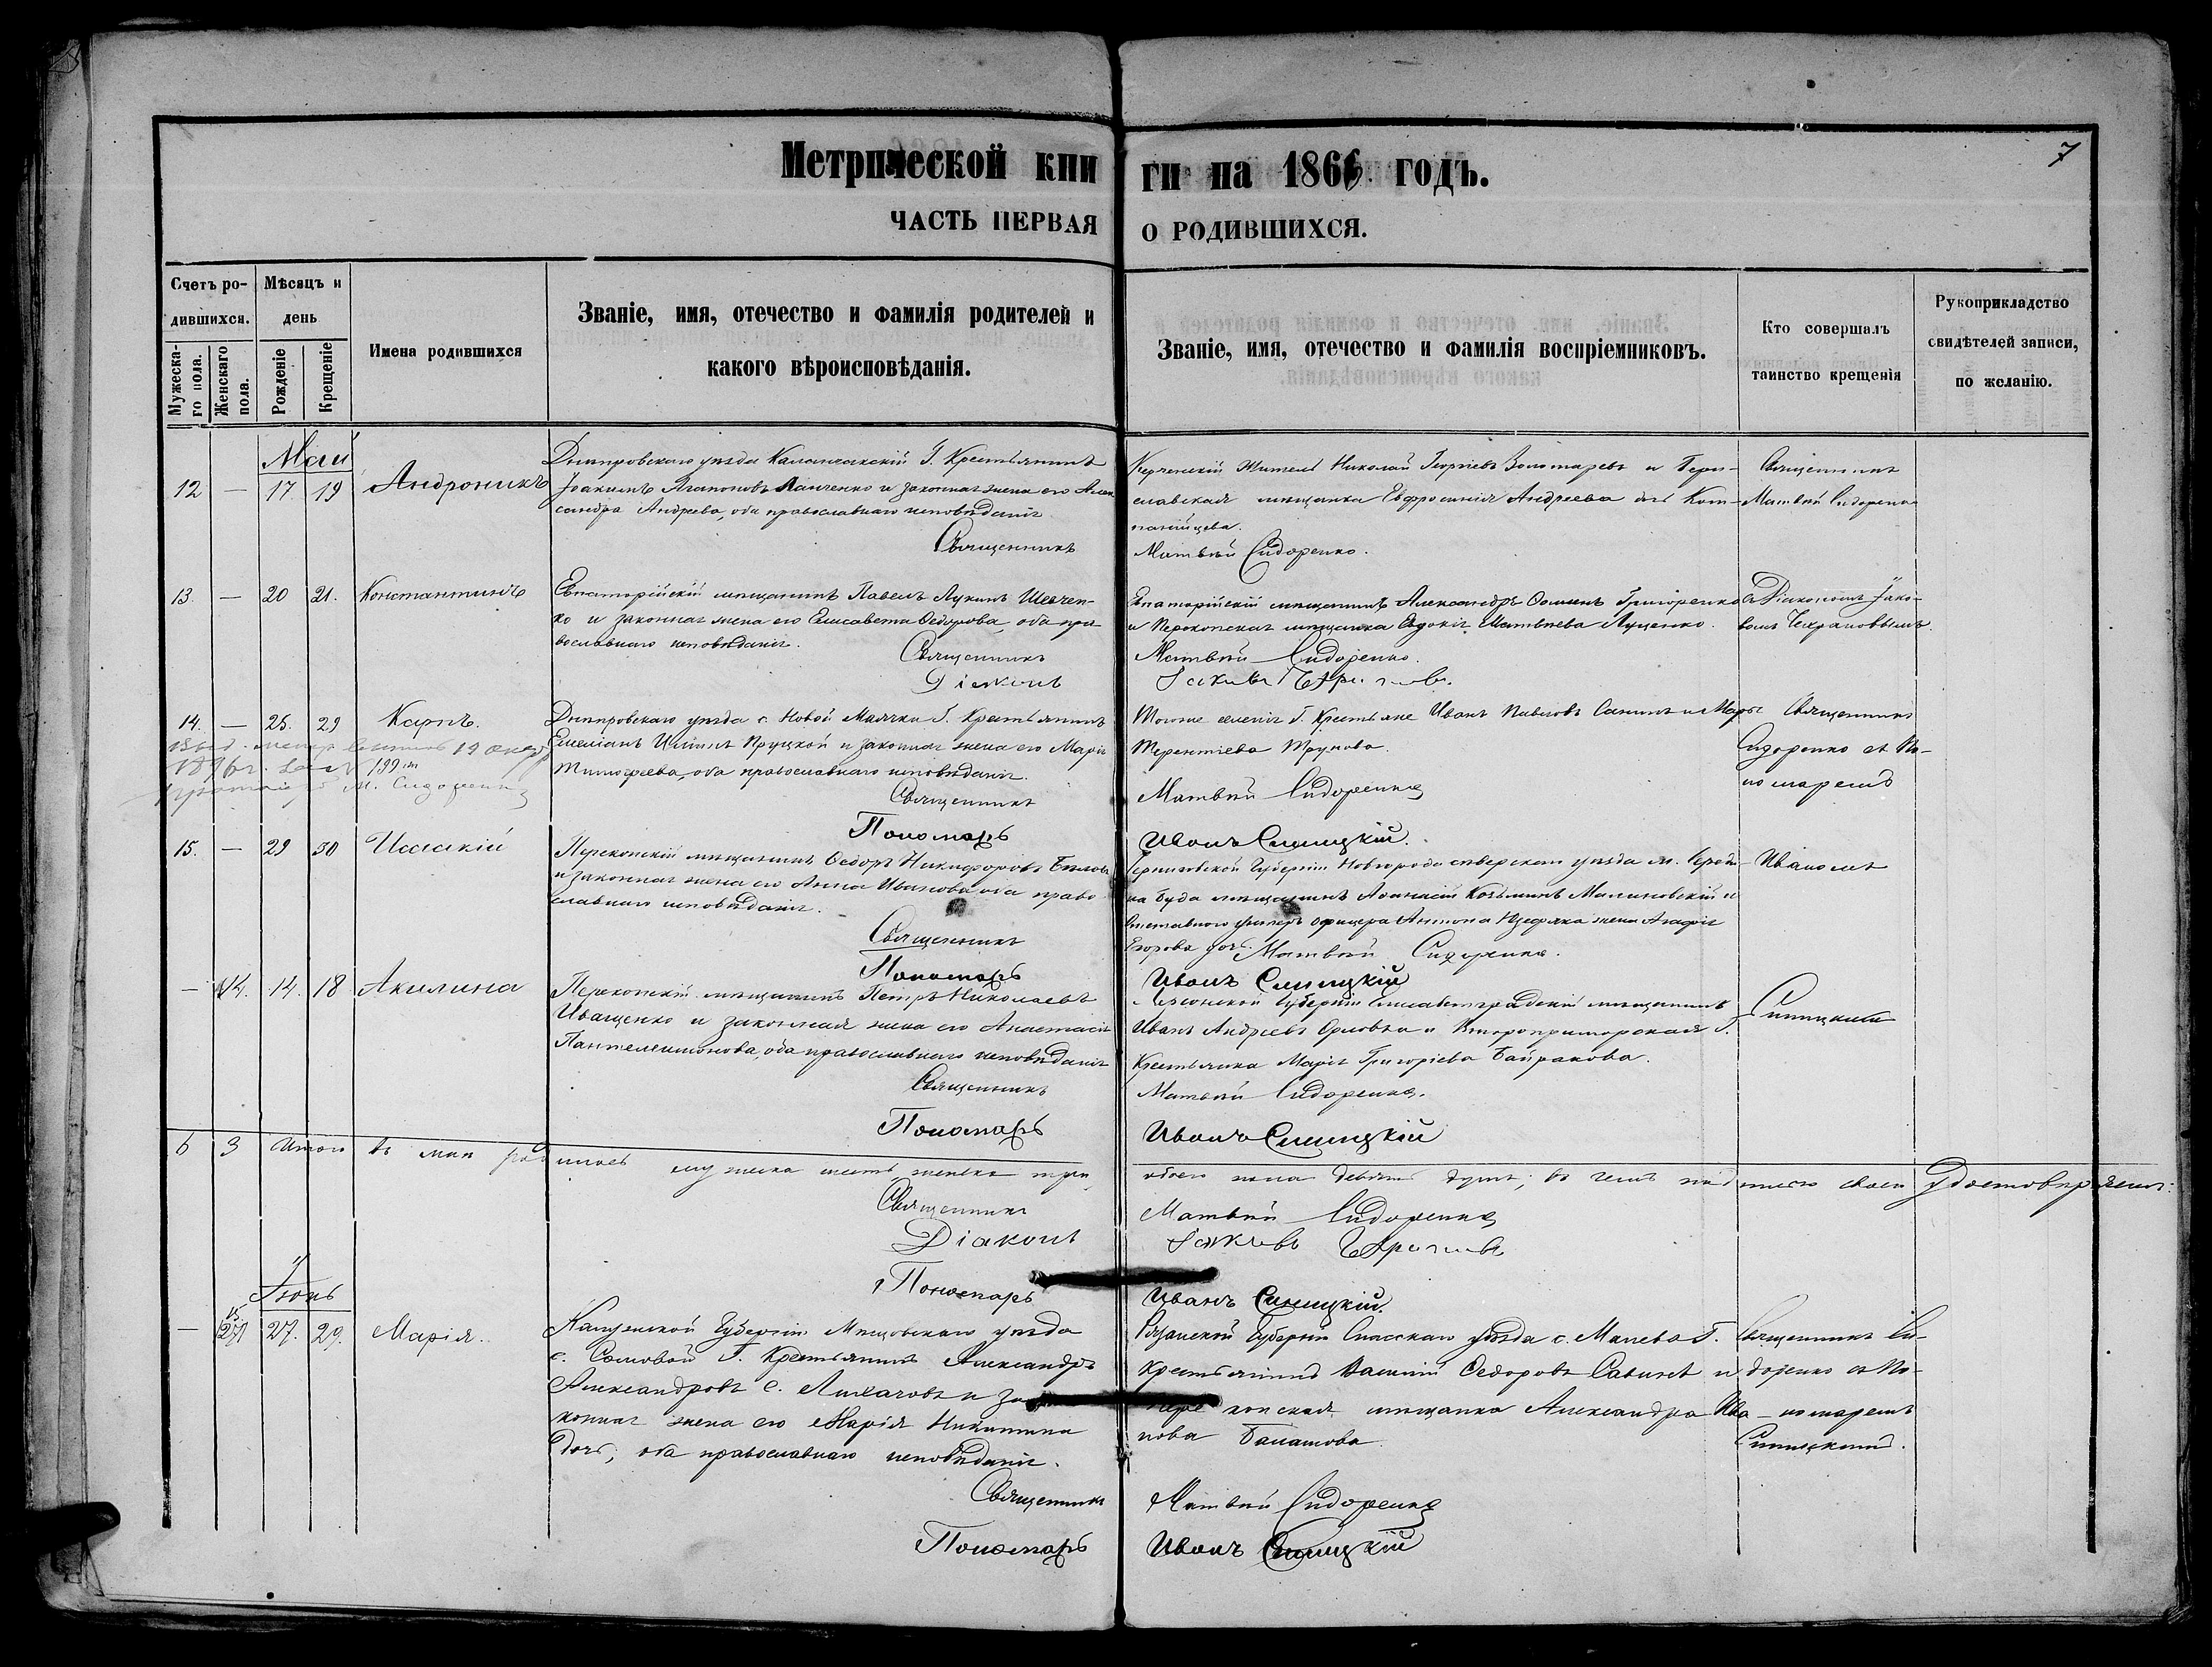 7
Метрической кни ги на 1866 годъ.
ЧАСТЬ ПЕРВАЯ О РОДИВШИХСЯ.
Счетъ ро-
дившихся.
Мужеска-
го пола.
Женскаго
пола.
Мѣсяцъ и
день
Рожденіе
Крещеніе
Имена родившихся
Званіе, имя, отечество и фамилія родителей и
какого вѣроисповѣданія.
Званіе, имя, отечество и фамилія воспріемниковъ.
Кто совершалъ
таинство крещенія
Рукоприкладство
свидѣтелей записи,
по желанію.
Май
12 — 17 19 Андроникъ
Днѣпровскаго уѣзда Каланчакскій Г. Крестьянинъ
Іоакимъ Панченко и законная жена его Алек-
сандра Андреева, оба православнаго исповѣданія
Священникъ
Керченскій житель Николай Георгіевъ Золотаревъ и Бери-
славская мѣщанка Евфросинія Андреева дочь Ком-
панійцева.
Матвѣй Сидоренко.
Священникъ
Матвѣй Сидоренко
13. — 20 21. Константинъ
Евпаторійскій мѣщанинъ Павелъ Лукинъ Шевчен-
ко и законная жена его Елисавета Ѳедорова, оба пра-
вославнаго исповѣданія.
Священникъ
Діаконъ
Евпаторійскій мѣщанинъ Александръ Ѳоминъ Григоренко
и Перекопская мѣщанка Евдокія Матвѣева Луценко.
Матвѣй Сидоренко.
Іаковъ
съ Діакономъ Іако-
вомъ
14. — 25. 29 Карпъ.
19
1896г. 199
М. Сидоренко
Днѣпровскаго уѣзда с. Новой Маячки Г. Крестьянинъ
Емеліанъ Пруцкой и законная жена его Марія
Тимофеева, оба православнаго исповѣданія.
Священникъ
Пономарь
Тогоже селенія Г. Крестьяне Иванъ Павловъ Санинъ и Марія
Терентіева Трунова.
Матвѣй Сидоренко
Иванъ Синицкій.
Священникъ
Сидоренко съ По-
номаремъ
15. — 29 30 Исаакій
Перекопскій мѣщанинъ Ѳедоръ Никифоровъ
и законная жена его Анна Иванова оба право
славнаго исповѣданія.
Священникъ
Пономарь
Черниговской Губерніи Новгородсѣверскаго уѣзда м. Середи-
на Буда мѣщанинъ Аѳанасій Козьминъ Малиновскій и
унтеръ офицера Антона жена Агафія
Егорова дочь. Матвѣй Сидоренко.
Иванъ Синицкій
Иваномъ
— 14. 14. 18 Акилина
Перекопскій мѣщанинъ Петръ Николаевъ
Иващенко и законная жена его Анастасія
Пантелеимонова, оба православнаго исповѣданія
Священникъ
Пономарь
Херсонской Губерніи Елисаветградскій мѣщанинъ
Иванъ Андреевъ Орловъ и Г.
Крестьянка Марія Григоріева Байракова.
Матвѣй Сидоренко.
Иванъ Синицкій
Синицкимъ
6 3 Итого въ маѣ родилось мужеска шесть, женска три,
обоего пола девять душъ; въ чемъ подписью своею удостовѣряемъ:
Священникъ Матвѣй Сидоренко
Діаконъ Іаковъ
Пономарь Иванъ Синицкій.
Іюнь
— 15. 27. 29. Марія.
Калужской Губерніи Мещовскаго уѣзда
с. Г. Крестьянинъ Александръ
Александровъ с. Лихачовъ и за-
конная жена его Марія Никитина
дочь; оба православнаго исповѣданія.
Священникъ
Пономарь
Рязанской Губерніи Спасскаго уѣзда с. Г.
Крестьянинъ Василій Ѳедоровъ Савинъ и
Перекопская мѣщанка Александра Ива-
нова Балашова
Матвѣй Сидоренко
Иванъ Синицкій
Священникъ Си-
доренко съ По-
номаремъ
Синицкимъ.